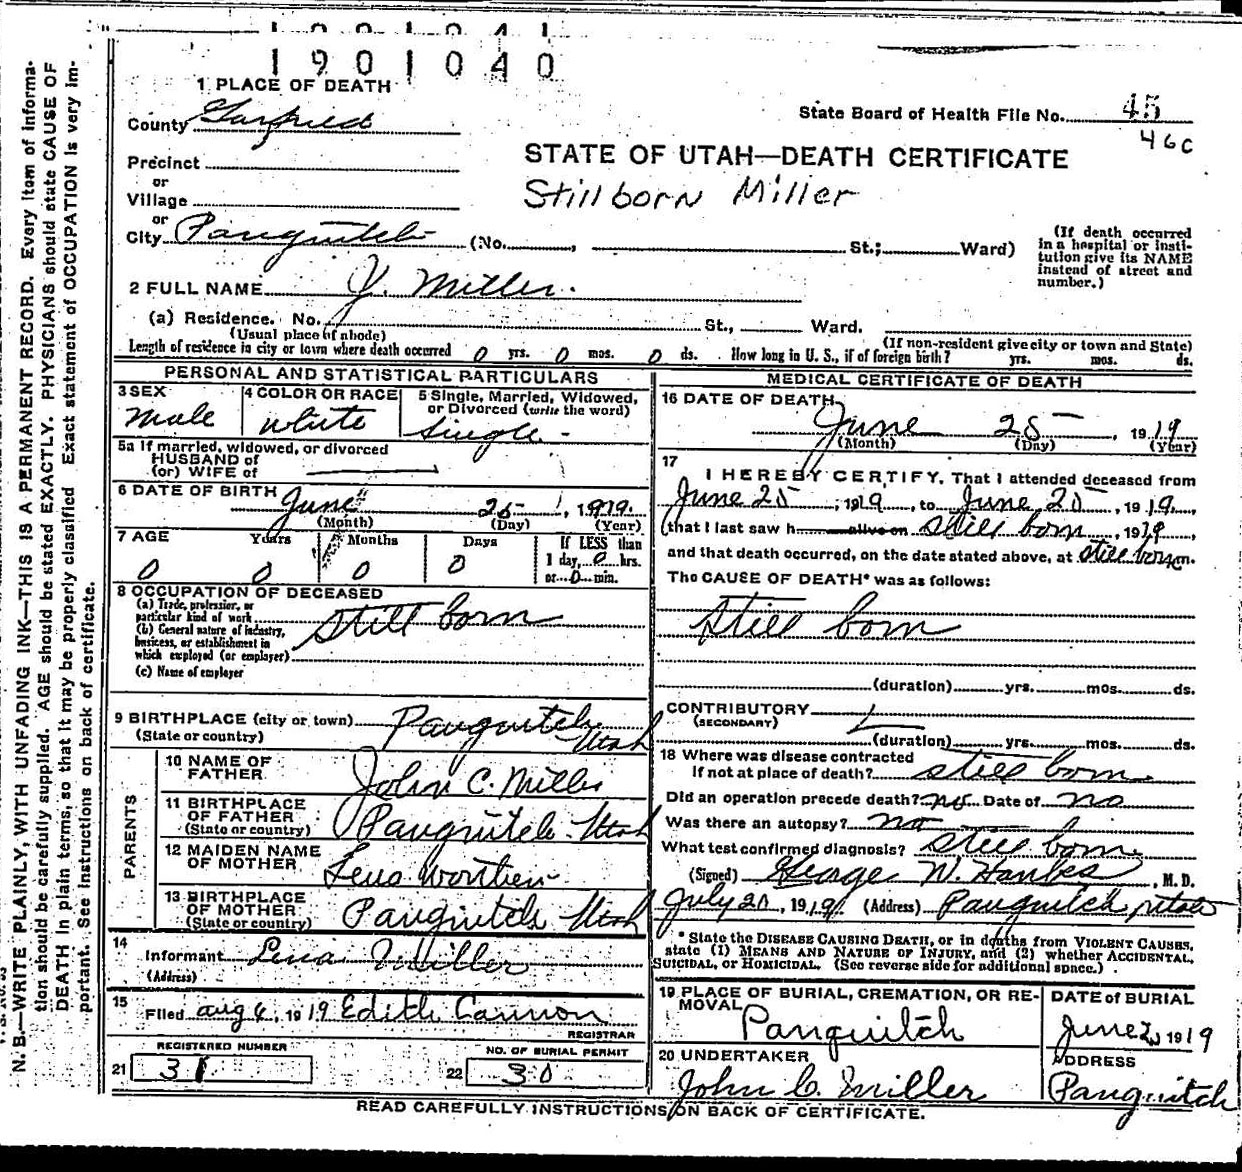 1901040
1 PLACE OF DEATH
County Garfield
State Board of Health File No. 45
46c
Precinct
or
Village
or
City Panguitch (No. , St.; Ward)
STATE OF UTAH—DEATH CERTIFICATE
Stillborn Miller
(If death occurred
in a hospital or insti-
tution give its NAME
instead of street and
number.)
2 FULL NAME Y. Miller.
(a) Residence. No. St., Ward.
(Usual place of abode) (If non-resident give city or town and State)
Length of residence in city or town where death occurred 0 yrs. 0 mos. 0 ds. How long in U. S., if of foreign birth? yrs. mos. ds.
PERSONAL AND STATISTICAL PARTICULARS
3 SEX
male
4 COLOR OR RACE
white
5 Single, Married, Widowed,
or Divorced (write the word)
Single
5a If married, widowed, or divorced
HUSBAND of
(or) WIFE of
6 DATE OF BIRTH June 25, 1919.
(Month) (Day) (Year)
7 AGE Years Months Days If LESS than
1 day, 0 hrs.
or 0 min.
0 0 0 0
8 OCCUPATION OF DECEASED
(a) Trade, profession, or
particular kind of work still born
(b) General nature of industry,
business, or establishment in
which employed (or employer)
(c) Name of employer
9 BIRTHPLACE (city or town) Panguitch
(State or country) Utah
PARENTS
10 NAME OF
FATHER John C. Miller
11 BIRTHPLACE
OF FATHER
(State or country) Panguitch Utah
12 MAIDEN NAME
OF MOTHER Lena Worthen
13 BIRTHPLACE
OF MOTHER
(State or country) Panguitch Utah
14
Informant Lena Miller
(Address)
15
Filed aug 6, 1919 Edith Cannon
REGISTRAR
REGISTERED NUMBER
21 31
NO. OF BURIAL PERMIT
22 30
MEDICAL CERTIFICATE OF DEATH
16 DATE OF DEATH
June 25, 1919
(Month) (Day) (Year)
17
I HEREBY CERTIFY, That I attended deceased from
June 25, 1919, to June 25, 1919,
that I last saw h alive on still born, 1919,
and that death occurred, on the date stated above, at still born m.
The CAUSE OF DEATH* was as follows:
still born
(duration) yrs. mos. ds.
CONTRIBUTORY
(SECONDARY)
(duration) yrs. mos. ds.
18 Where was disease contracted
If not at place of death? still born
Did an operation precede death? no Date of no
Was there an autopsy? no
What test confirmed diagnosis? still born
(Signed) George W. , M. D.
July 20, 1919 (Address) Panguitch Utah
* State the DISEASE CAUSING DEATH, or in deaths from VIOLENT CAUSES,
state (1) MEANS AND NATURE OF INJURY, and (2) whether ACCIDENTAL,
SUICIDAL, or HOMICIDAL. (See reverse side for additional space.)
19 PLACE OF BURIAL, CREMATION, OR RE-
MOVAL
Panguitch
DATE of BURIAL
June 1919
20 UNDERTAKER
John C. Miller
ADDRESS
Panguitch
READ CAREFULLY INSTRUCTIONS ON BACK OF CERTIFICATE.
N. B.—WRITE PLAINLY, WITH UNFADING INK—THIS IS A PERMANENT RECORD. Every item of informa-
tion should be carefully supplied. AGE should be stated EXACTLY. PHYSICIANS should state CAUSE OF
DEATH in plain terms, so that it may be properly classified. Exact statement of OCCUPATION is very im-
portant. See instructions on back of certificate.